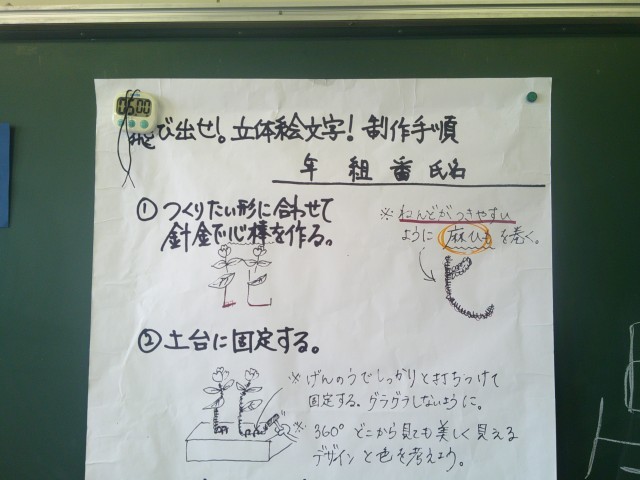 05:00
飛び出せ!立体絵文字!制作手順
年 組 番 氏名
① つくりたい形に合わせて
針金で心棒を作る。
※ねんどがつきやすい
ように麻ひもを巻く。
② 土台に固定する。
※げんのうでしっかりと打ちつけて
固定する。グラグラしないように。
※360° どこから見ても美しく見える
デザインと色を考えよう。